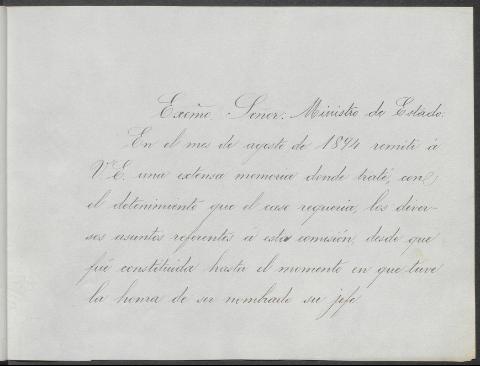 Excmo. Señor: Ministro de Estado.
En el mes de agosto de 1894 remití á
V.E. una extensa memoria donde traté, con
el detenimiento que el caso requeria, los diver-
sos asuntos referentes á esta comisión, desde que
fué constituida hasta el momento en que tuve
la honra de ser nombrado su jefe